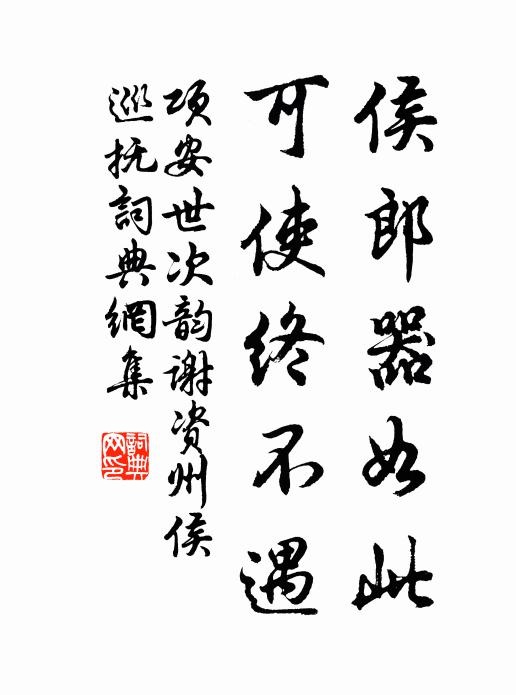 侯郎器如此
可使終不遇
項安世次韵谢資州侯
巡抚詞典網集
詞典网印